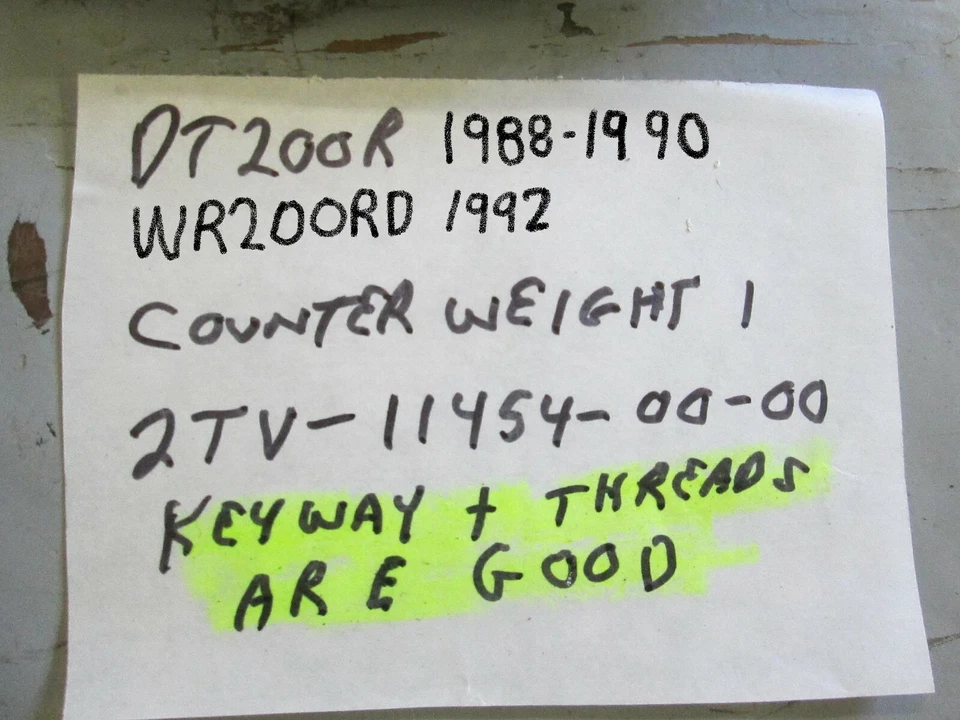 DT200R 1988-1990
WR200RD 1992
COUNTER WEIGHT 1
2TV-11454-00-00
KEYWAY + THREADS
ARE GOOD